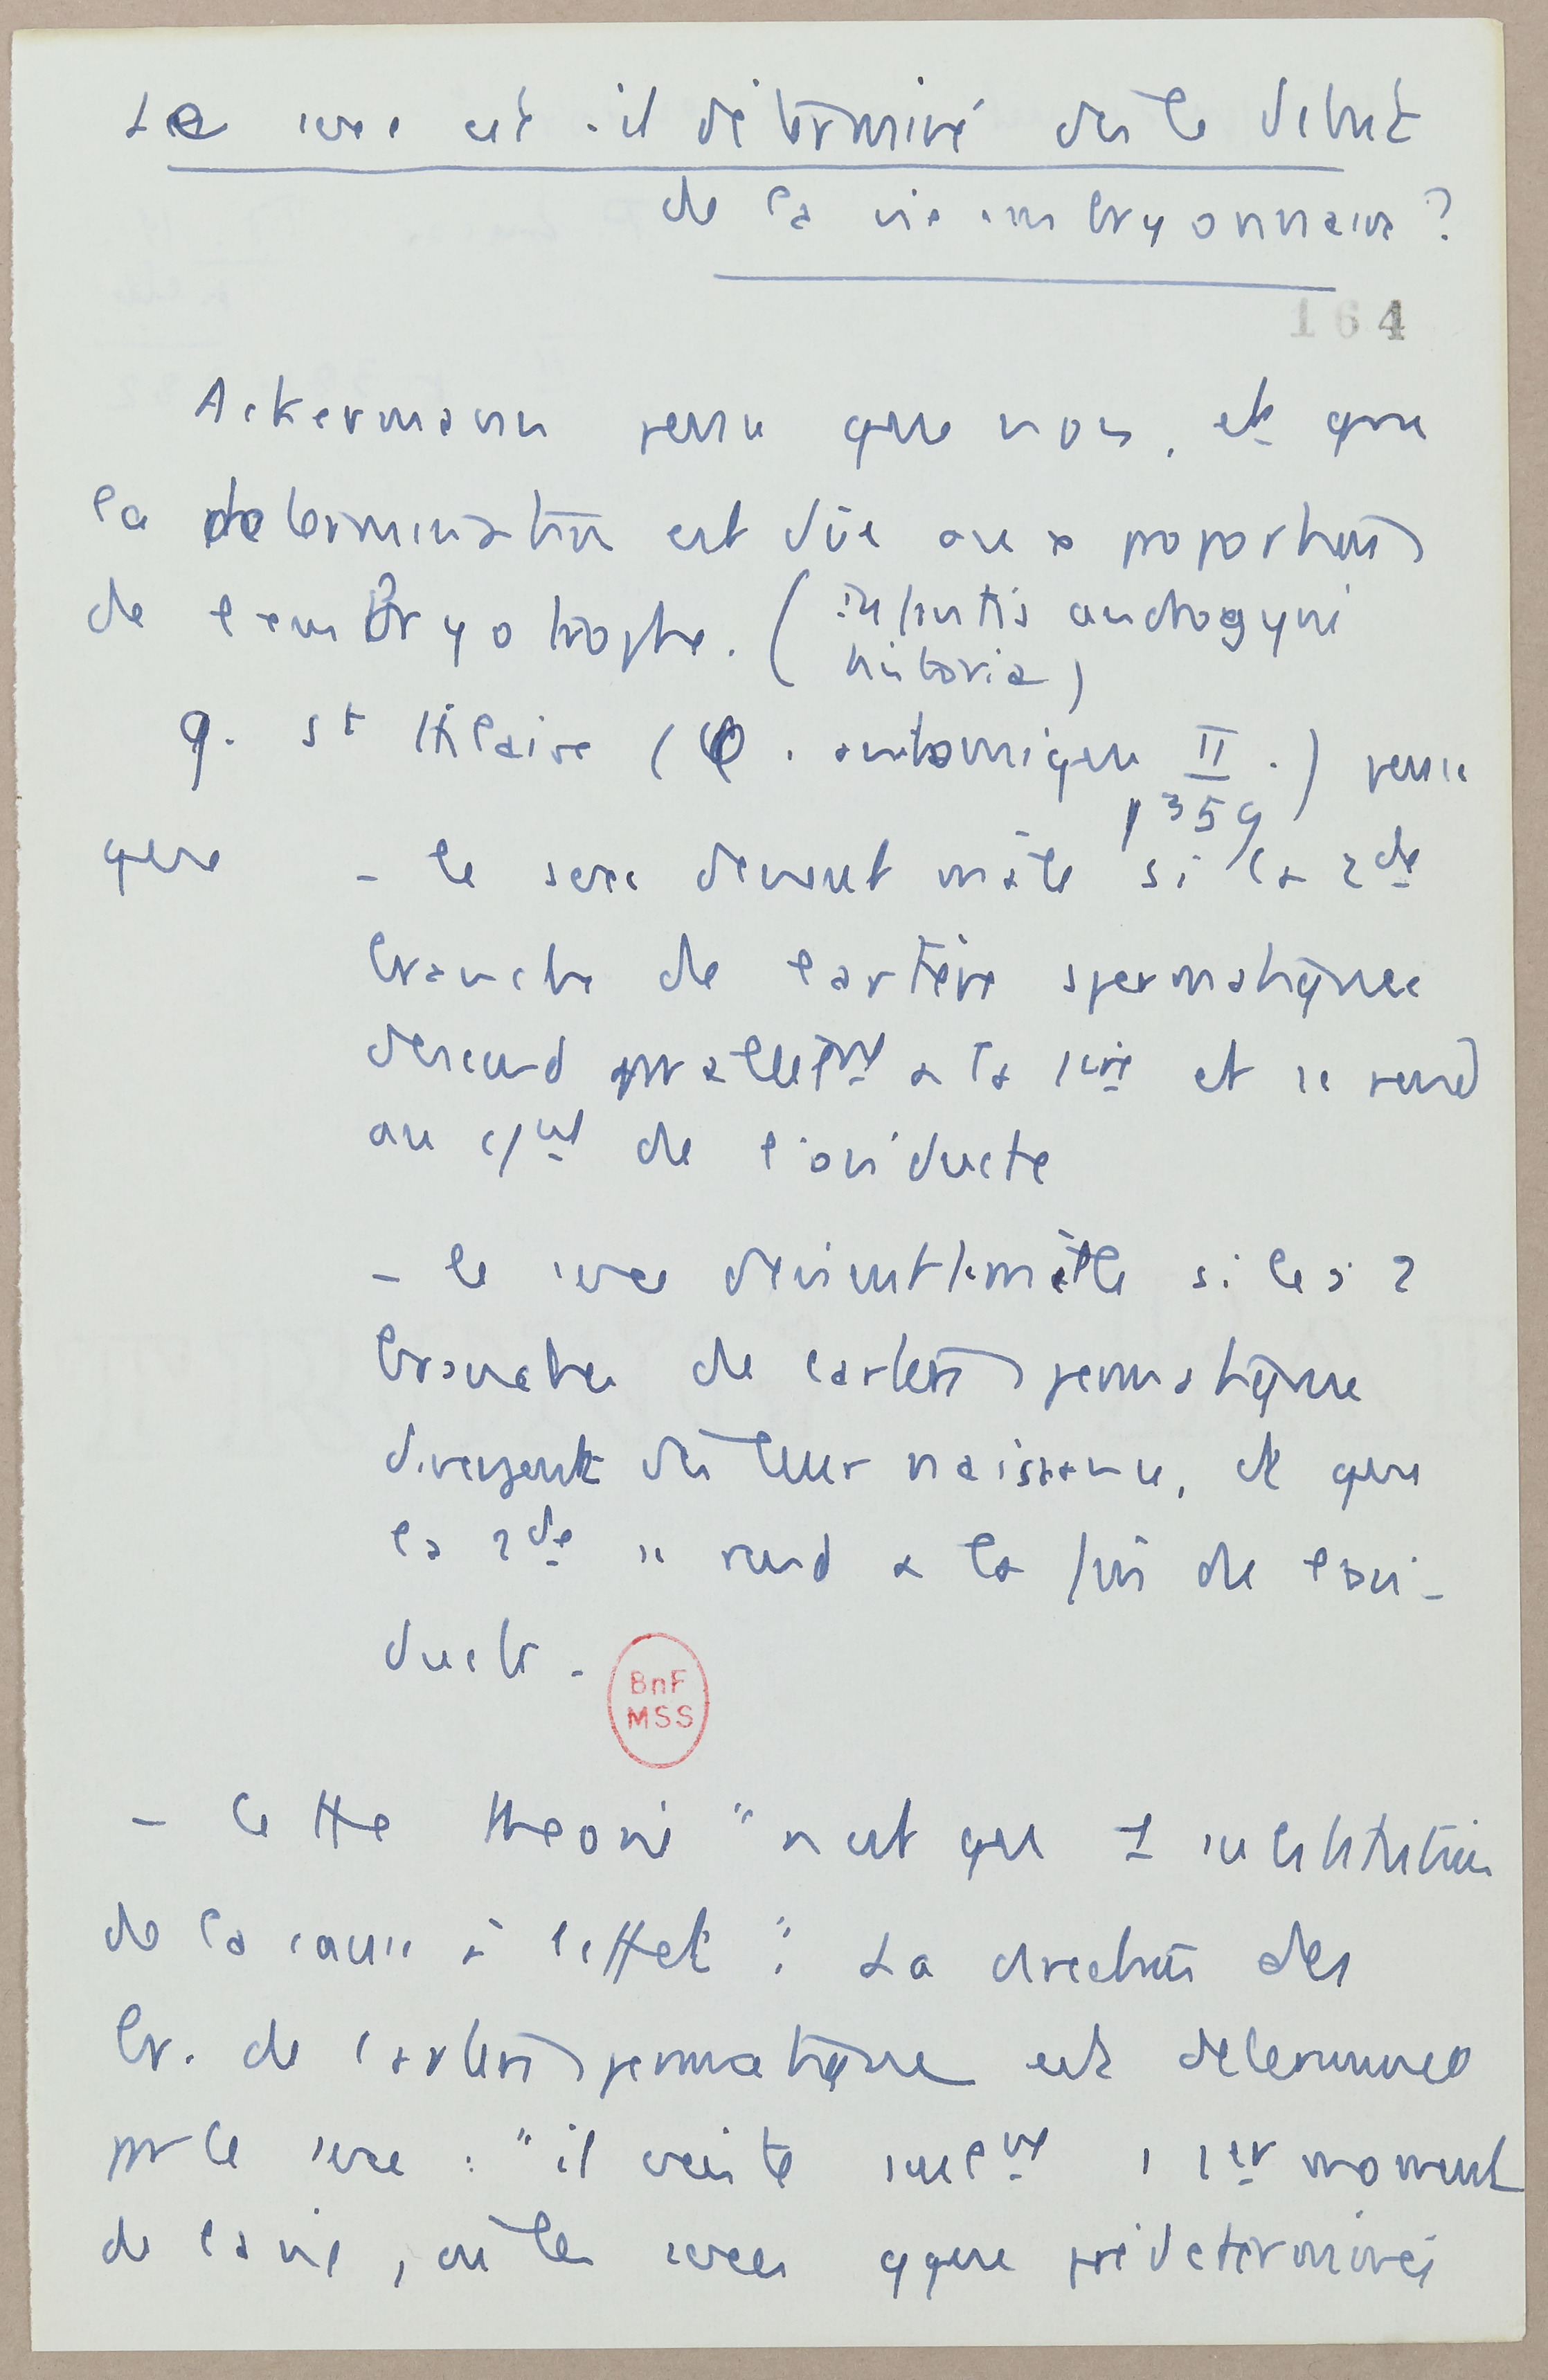 Le sexe est-il déterminé dès le début
de la vie embryonnaire ?
164
Ackermann pense que non, et que
la détermination est due aux proportions
de l'embryotrophe. (infantis androgyni
historia)
G. St Hilaire (φ. anatomique II.) pense
p 359
que - le sexe devient mâle si la 2de
branche de l'artère spermatique
descend parallèlemt à la 1ère et se rend
au cmt de l'oviducte
- le sexe devient femelle si les 2
branches de l'artère spermatique
divergent dès leur naissance, et que
la 2de se rend à la fin de l'ovi-
ducte.
BnF
MSS
- Cette théorie "n'est que 1 substitution
de la cause à l'effet". La direction des
br. de l'artère spermatique est déterminée
par le sexe : "il existe seulmt 1 1er moment
de la vie, où les sexes qque prédéterminés